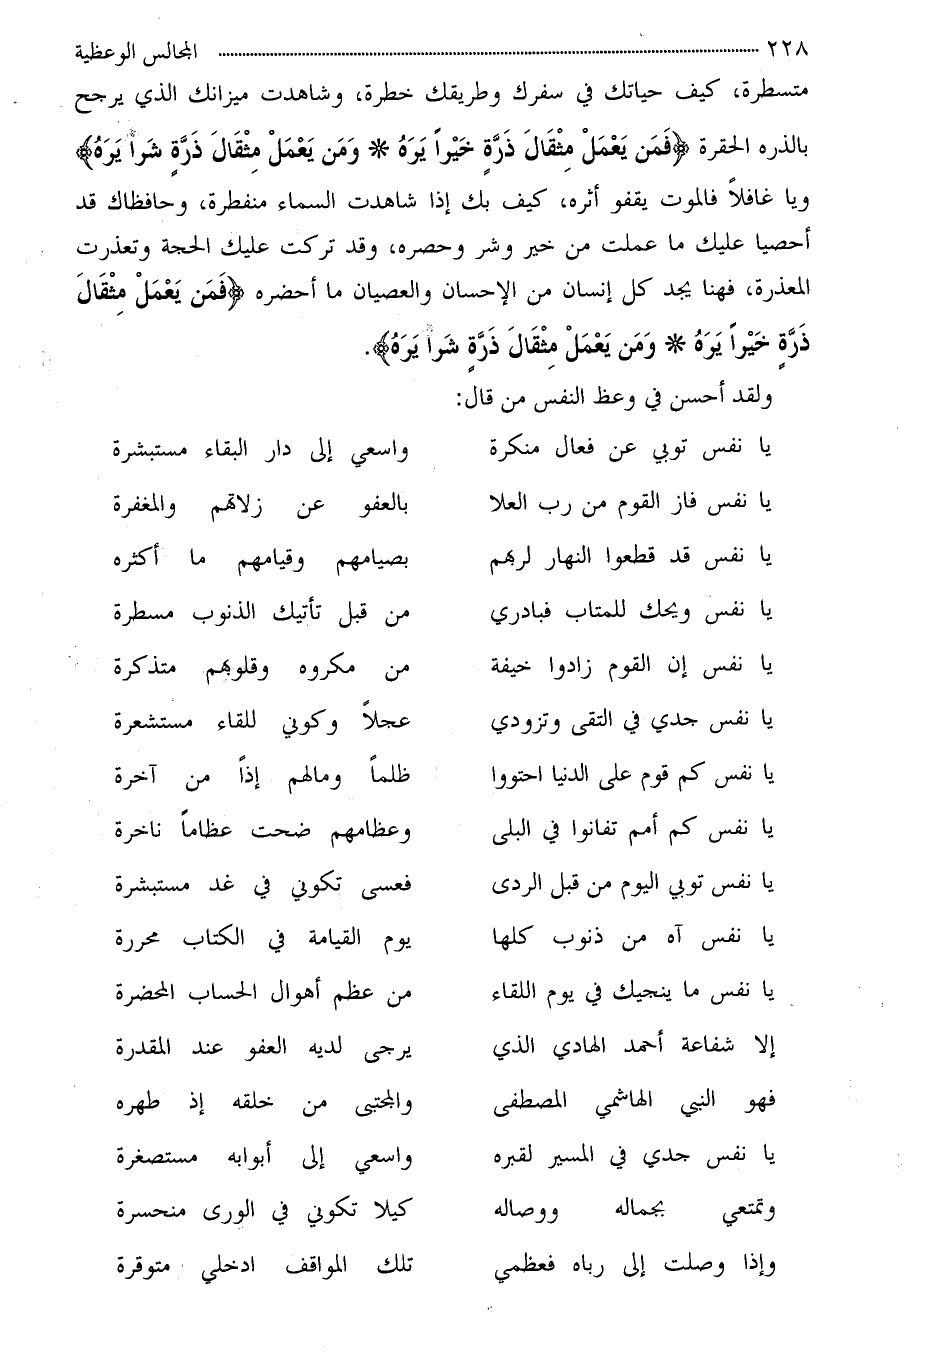 ٢٢٨ ........ المجالس الوعظية
متسطرة، كيف حياتك في سفرك وطريقك خطرة، وشاهدت ميزانك الذي يرجح
بالذره الحقرة ﴿فَمَن يَعْمَلْ مِثْقَالَ ذَرَّةٍ خَيْراً يَرَهُ * وَمَن يَعْمَلْ مِثْقَالَ ذَرَّةٍ شَراً يَرَهُ﴾
ويا غافلاً فالموت يقفو أثره، كيف بك إذا شاهدت السماء منفطرة، وحافظاك قد
أحصيا عليك ما عملت من خير وشر وحصره، وقد تركت عليك الحجة وتعذرت
المعذرة، فهنا يجد كل إنسان من الإحسان والعصيان ما أحضره ﴿فَمَن يَعْمَلْ مِثْقَالَ
ذَرَّةٍ خَيْراً يَرَهُ * وَمَن يَعْمَلْ مِثْقَالَ ذَرَّةٍ شَراً يَرَهُ﴾.
ولقد أحسن في وعظ النفس من قال:
يا نفس توبي عن فعال منكرة واسعي إلى دار البقاء مستبشرة
يا نفس فاز القوم من رب العلا بالعفو عن زلاتهم والمغفرة
يا نفس قد قطعوا النهار لربهم بصيامهم وقيامهم ما أكثره
يا نفس ويحك للمتاب فبادري من قبل تأتيك الذنوب مسطرة
يا نفس إن القوم زادوا خيفة من مكروه وقلوبهم متذكرة
يا نفس جدي في التقى وتزودي عجلاً وكوني للقاء مستشعرة
يا نفس كم قوم على الدنيا احتووا ظلماً ومالهم إذاً من آخرة
يا نفس كم أمم تفانوا في البلى وعظامهم ضحت عظاماً ناخرة
يا نفس توبي اليوم من قبل الردى فعسى تكوني في غد مستبشرة
يا نفس آه من ذنوب كلها يوم القيامة في الكتاب محررة
يا نفس ما ينجيك في يوم اللقاء من عظم أهوال الحساب المحضرة
إلا شفاعة أحمد الهادي الذي يرجى لديه العفو عند المقدرة
فهو النبي الهاشمي المصطفى والمجتبى من خلقه إذ طهره
يا نفس جدي في المسير لقبره واسعي إلى أبوابه مستصغرة
وتمتعي بجماله ووصاله كيلا تكوني في الورى منحسرة
وإذا وصلت إلى رباه فعظمي تلك المواقف ادخلي متوقرة